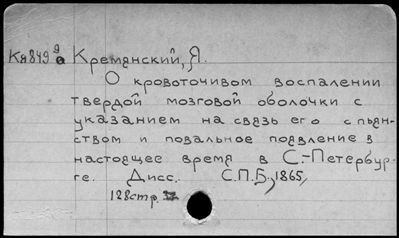 Кя849 а Кремянский, Я.
О кровоточивом воспалении
твердой мозговой оболочки с
указанием на связь его с пьян-
ством и повальное появление в
настоящее время в С.-Петербур-
ге. Дисс. С.П.Б., 1865,
128 стр.